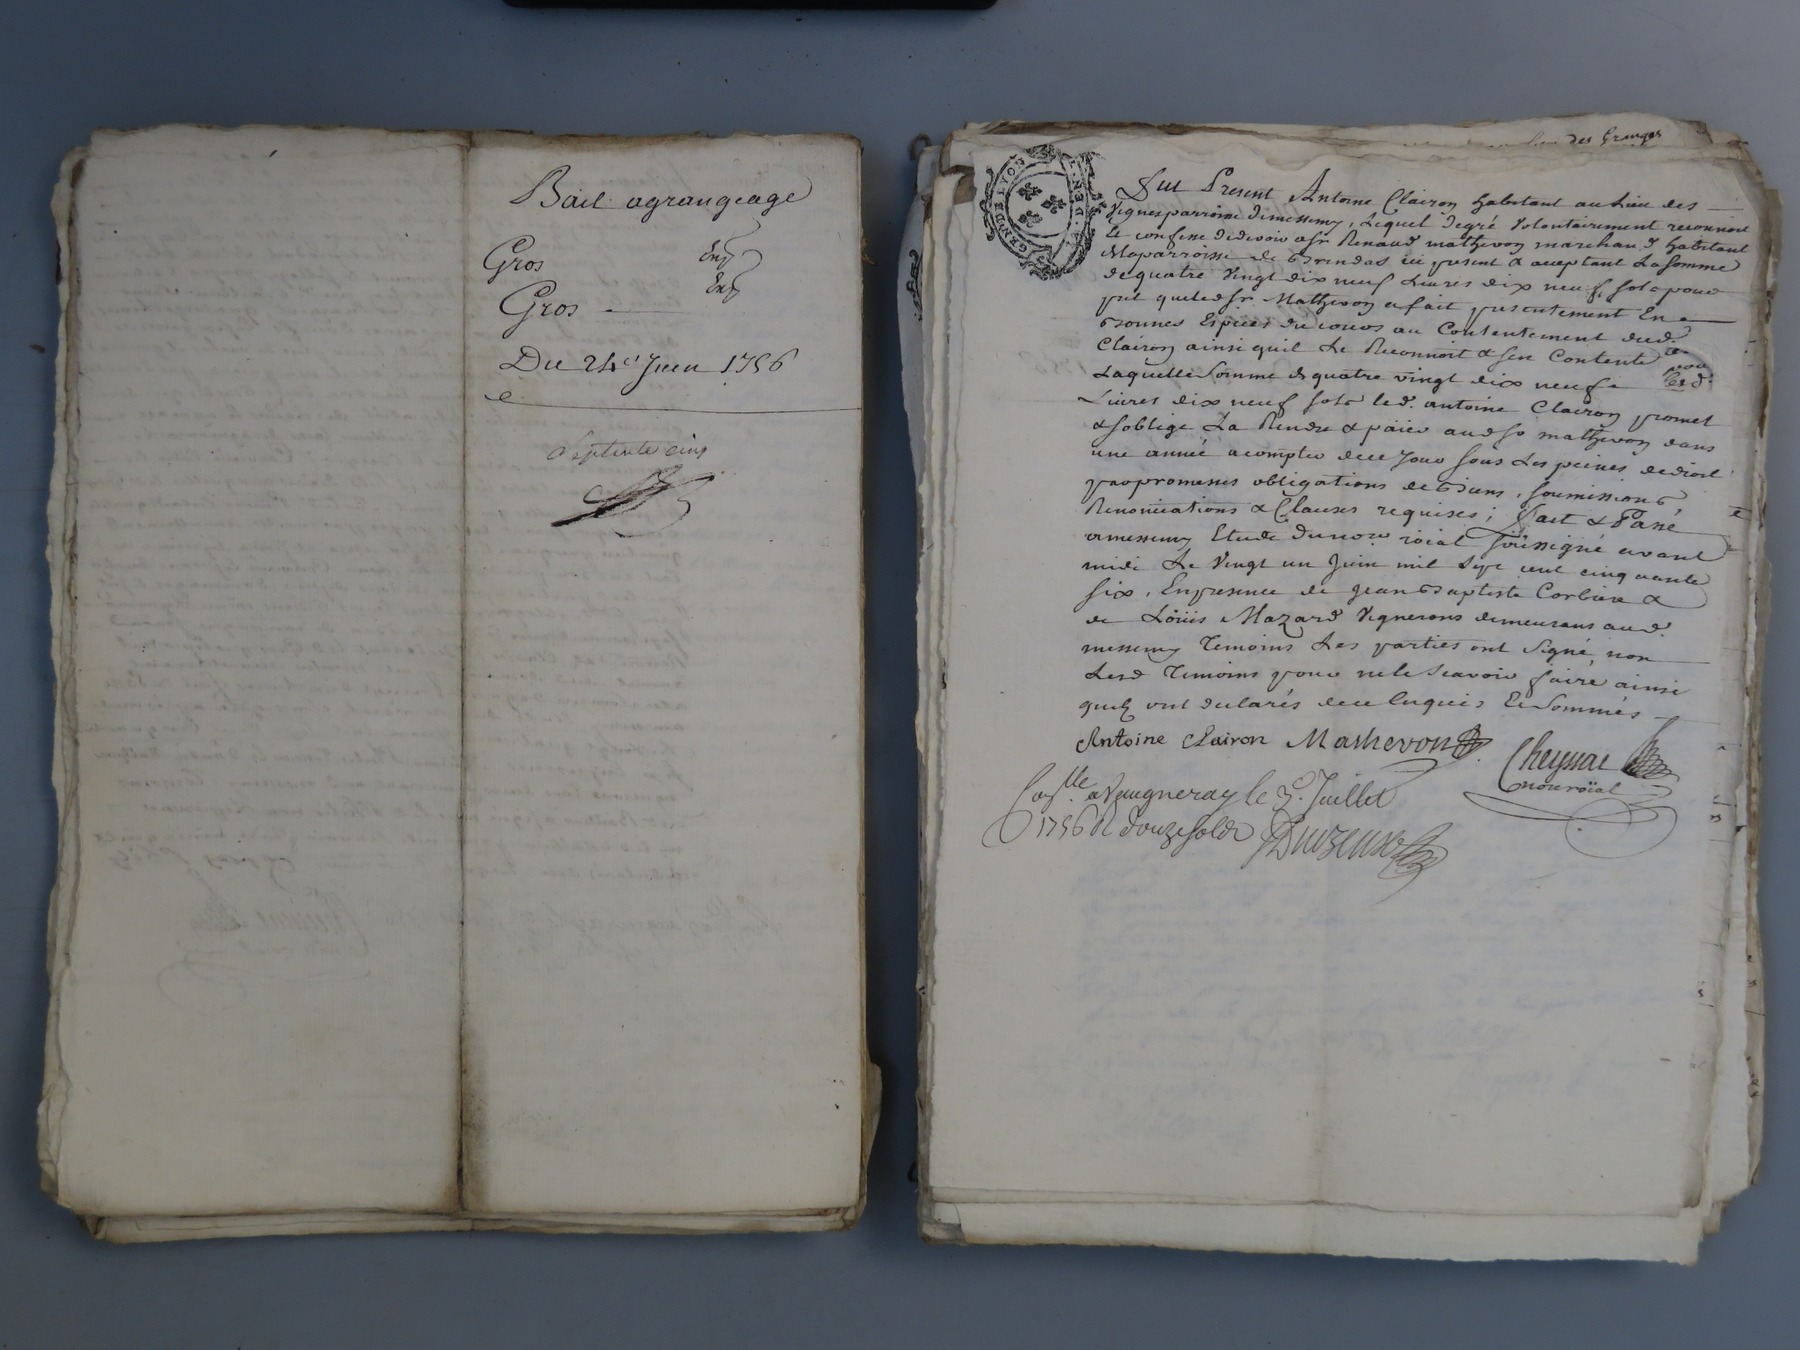 Bail agrangeage
Gros
Gros
Du 24e Juin 1756
Septante cinq
des Granges
GEN. DE LYON
Fut Present Antoine Clairon habitant au Lieu des
Vignes parroisse de messimy, Lequel degré Volontairement reconnoit
Et confesse de devoir a sr Renaud mathevon marchand habitant
de Brindas ici present & acceptant La Somme
de quatre Vingt dix neuf Livres dix neuf sols pour
pret que led sr Mathevon a fait presentement En
bonnes Espices du cours au Contentement dud.
Clairon ainsi quil Le Reconnoit & sen Contente
Laquelle Somme de quatre vingt dix neuf
Livres dix neuf sols led. antoine Clairon promet
& soblige La Rendre & païer aud sr mathevon dans
une année a compter de ce Jour sous Les peines de droit
par promesses obligations de biens, soumissions
Renonciations & Clauses requises; Fait & Passé
a messimy Etude du nore roïal soussigné avant
midi Le Vingt un Juin mil sept cent cinquante
six, En presence de jean Baptiste Corbiere &
de Loüis Mazard Vignerons demeurans aud.
messimy Temoins Les parties ont Signé, non
Lesd Temoins pour ne le Scavoir faire ainsi
quils ont declarés de ce Enquis Et Sommés
Antoine Clairon Mathevon
Cheyssac
nore roïal
Conllé a Vaugneray le 3e. Juillet
1756 R douze sols